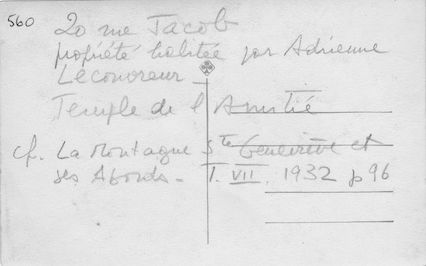 560
20 rue Jacob
propriété habitée par Adrienne
Lecouvreur
Temple de l'Amitié
cf. La Montagne Ste Geneviève et
ses Abords - T. VII. 1932 p 96